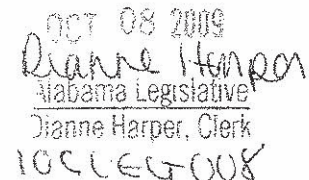 OCT 08 2009
Dianne Harper
Alabama Legislative
Dianne Harper, Clerk